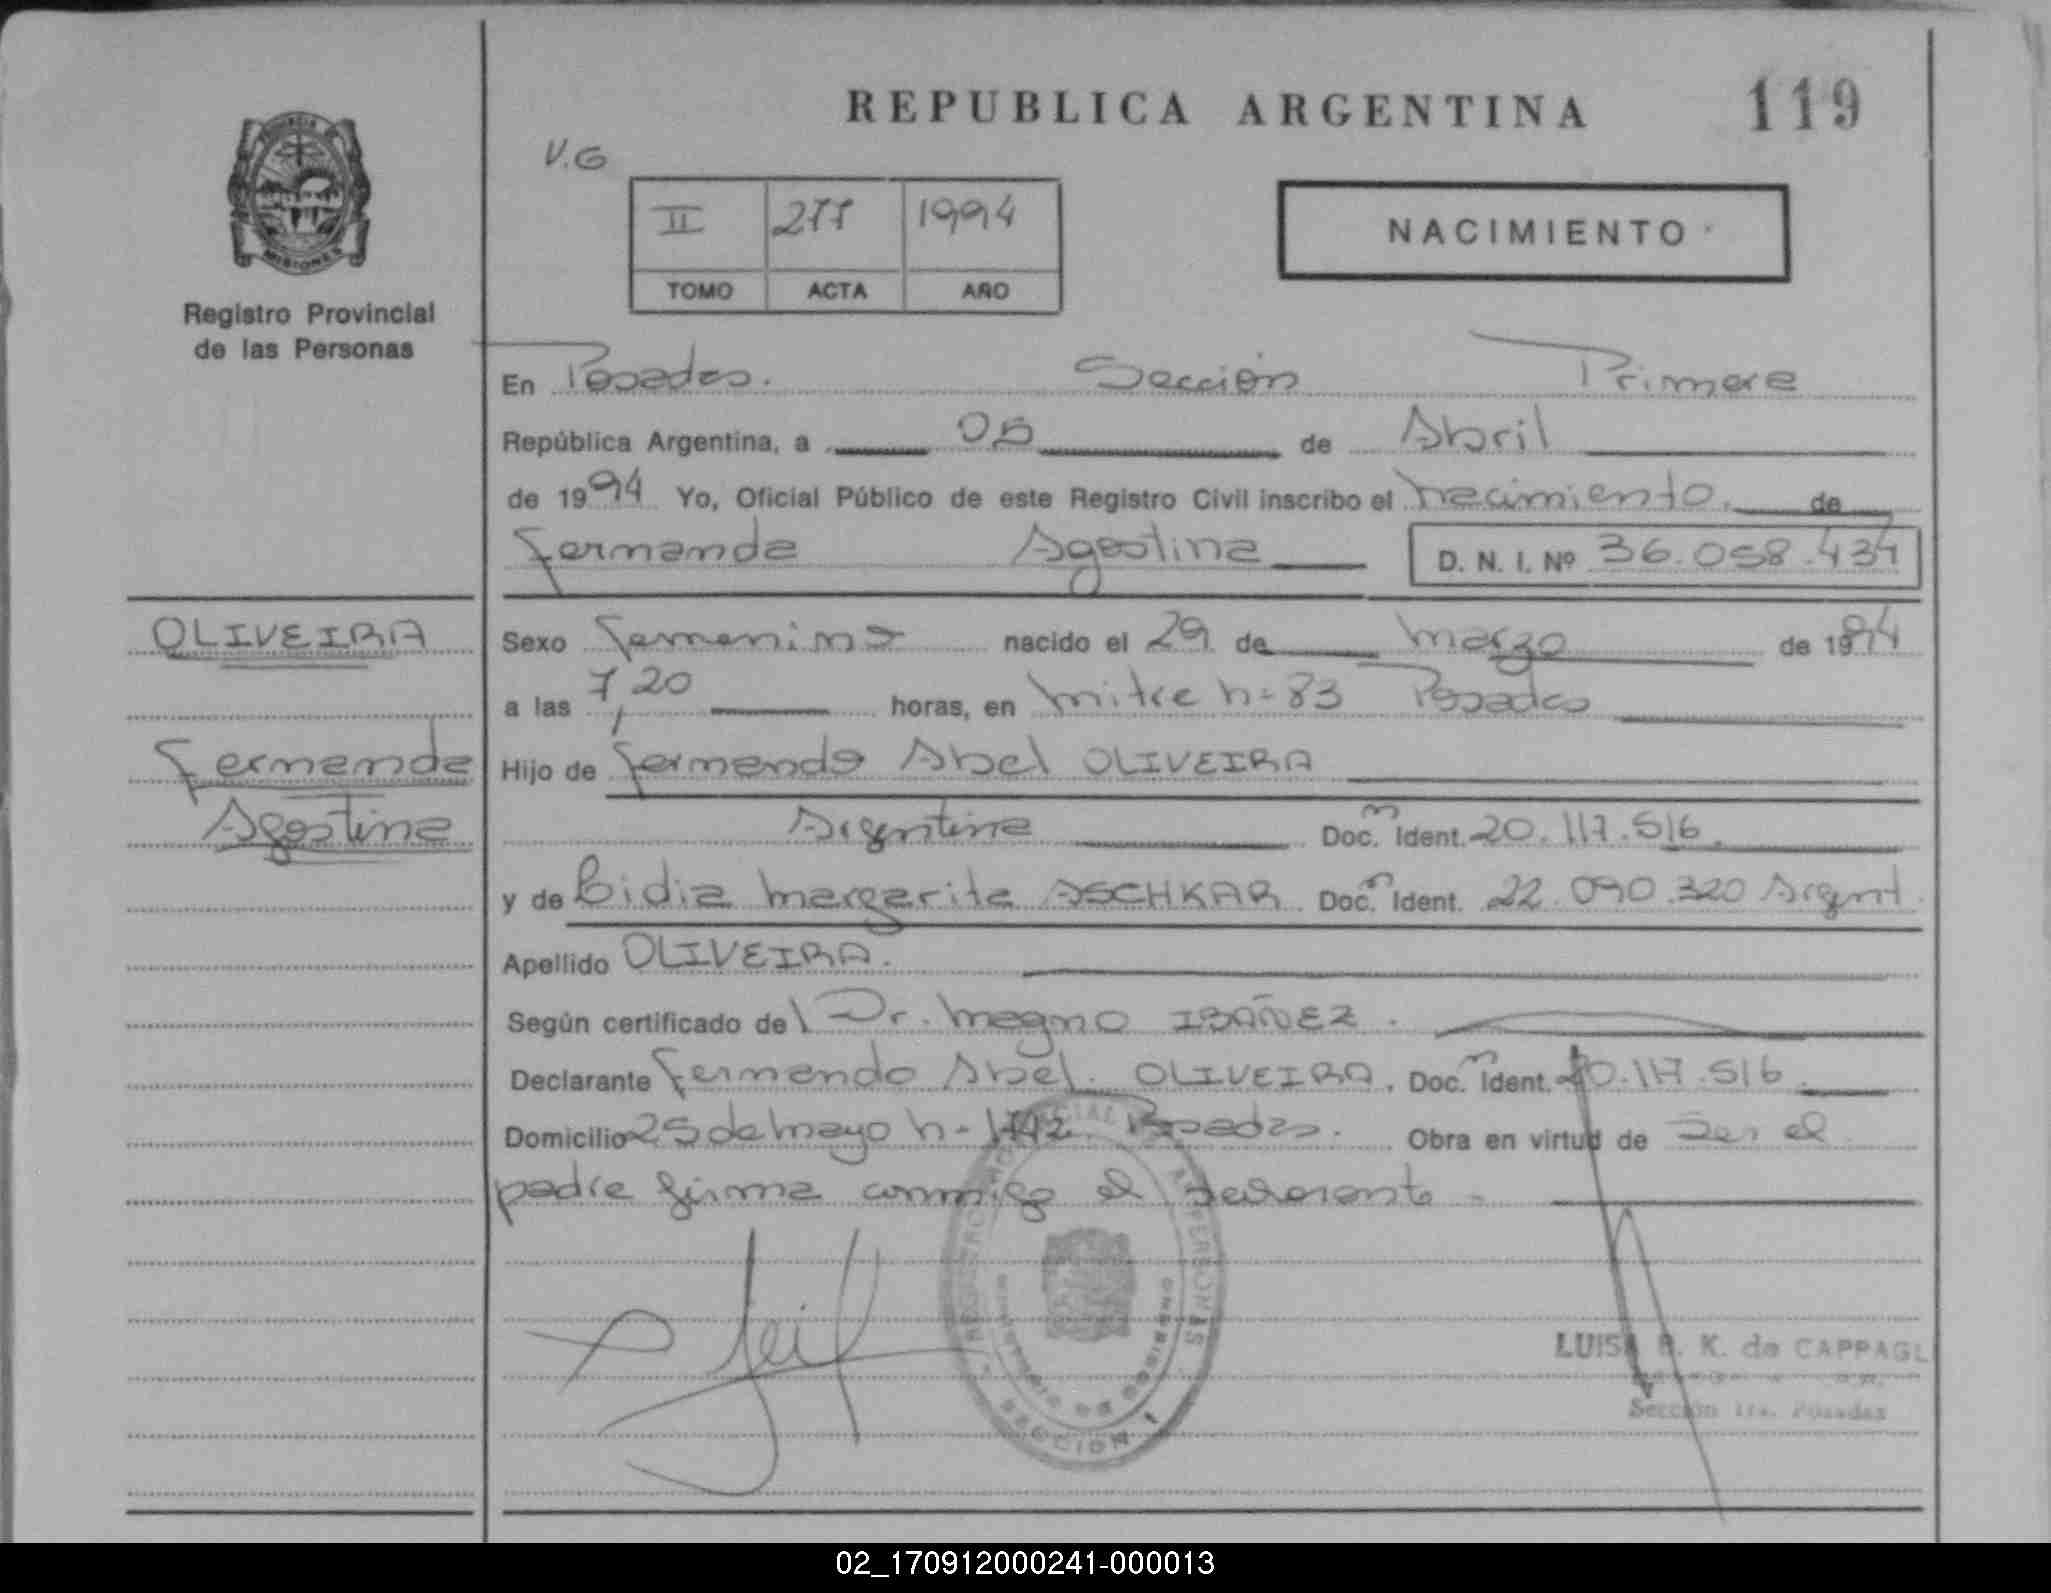 REPUBLICA ARGENTINA
119
PROVINCIA DE
MISIONES
Registro Provincial
de las Personas
V.G
II 277 1994
TOMO ACTA AÑO
NACIMIENTO
En Posadas. Sección Primera
República Argentina, a 05 de Abril
de 1994 Yo, Oficial Público de este Registro Civil inscribo el nacimiento. de
Fernanda Agostina D. N. I. Nº 36.058.434
OLIVEIRA
Fernanda
Agostina
Sexo femenino nacido el 29 de marzo de 1994
a las 7,20 horas, en mitre n=83 Posadas
Hijo de Fernando Abel OLIVEIRA
Argentina Doc. Ident. 20.117.516.
y de Lidia Margarita ASCHKAR Doc. Ident. 22.090.320 Argent.
Apellido OLIVEIRA.
Según certificado del Dr. Magno IBAÑEZ.
Declarante Fernando Abel. OLIVEIRA. Doc. Ident. 20.117.516.
Domicilio 25 de mayo n- Posadas. Obra en virtud de ser el
padre firma conmigo el declarante.
REGISTRO PROVINCIAL DE LAS PERSONAS
SECCION 1
LUISA K. de CAPPAGL
Sección 1ra. Posadas
02_170912000241-000013